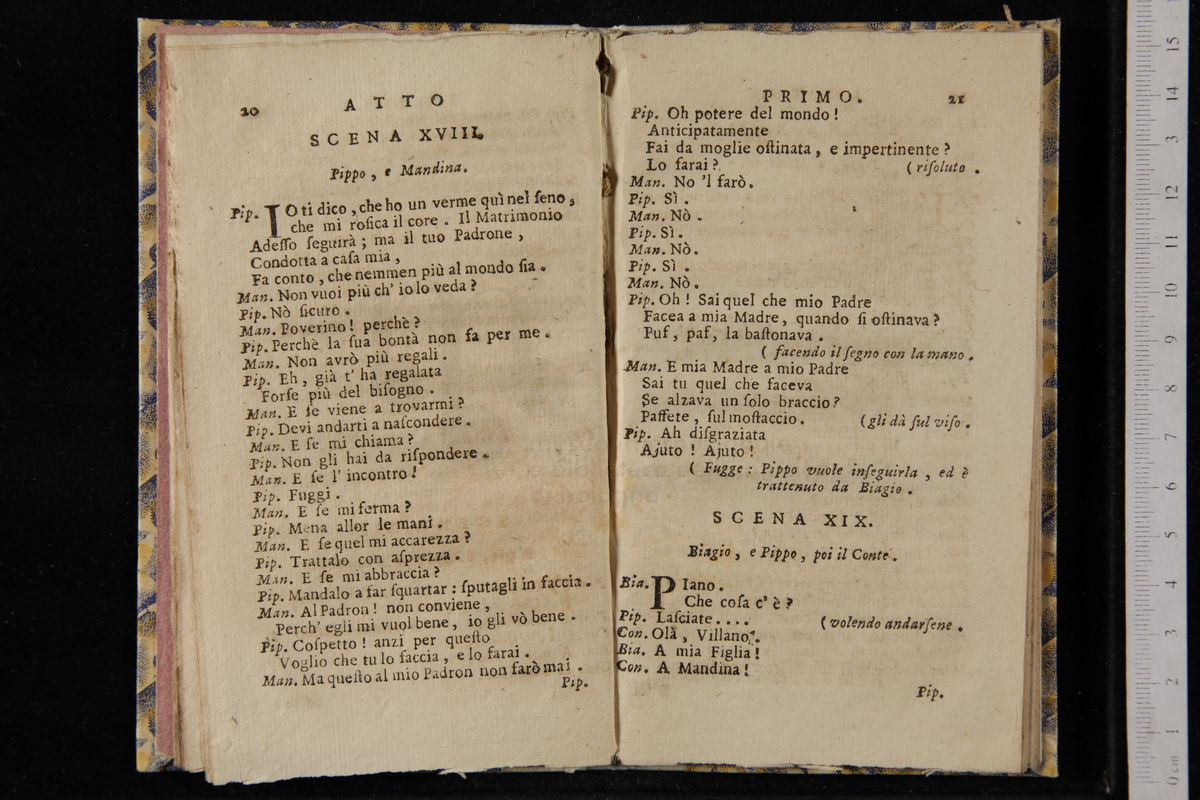 20
ATTO
SCENA XVIII.
Pippo, e Mandina.
Pip. IO ti dico, che ho un verme quì nel ſeno,
che mi roſica il core. Il Matrimonio
Adeſſo ſeguirà; ma il tuo Padrone,
Condotta a caſa mia,
Fa conto, che nemmen più al mondo ſia.
Man. Non vuoi più ch' io lo veda?
Pip. Nò ſicuro.
Man. Poverino! perchè?
Pip. Perchè la ſua bontà non fa per me.
Man. Non avrò più regali.
Pip. Eh, già t' ha regalata
Forſe più del biſogno.
Man. E ſe viene a trovarmi?
Pip. Devi andarti a naſcondere.
Man. E ſe mi chiama?
Pip. Non gli hai da riſpondere.
Man. E ſe l' incontro!
Pip. Fuggi.
Man. E ſe mi ferma?
Pip. Mena allor le mani.
Man. E ſe quel mi accarezza?
Pip. Trattalo con aſprezza.
Man. E ſe mi abbraccia?
Pip. Mandalo a far ſquartar: ſputagli in faccia.
Man. Al Padron! non conviene,
Perch' egli mi vuol bene, io gli vò bene.
Pip. Coſpetto! anzi per queſto
Voglio che tu lo faccia, e lo farai.
Man. Ma queſto al mio Padron non farò mai.
Pip.
PRIMO.
21
Pip. Oh potere del mondo!
Anticipatamente
Fai da moglie oſtinata, e impertinente?
Lo farai? (riſoluto.
Man. No 'l farò.
Pip. Sì.
Man. Nò.
Pip. Sì.
Man. Nò.
Pip. Sì.
Man. Nò.
Pip. Oh! Sai quel che mio Padre
Facea a mia Madre, quando ſi oſtinava?
Puf, paf, la baſtonava.
(facendo il ſegno con la mano.
Man. E mia Madre a mio Padre
Sai tu quel che faceva
Se alzava un ſolo braccio?
Paffete, ſul moſtaccio. (gli dà ſul viſo.
Pip. Ah diſgraziata
Ajuto! Ajuto!
(Fugge: Pippo vuole inſeguirla, ed è
trattenuto da Biagio.
SCENA XIX.
Biagio, e Pippo, poi il Conte.
Bia. PIano.
Che coſa c' è?
Pip. Laſciate.... (volendo andarſene.
Con. Olà, Villano.
Bia. A mia Figlia!
Con. A Mandina!
Pip.